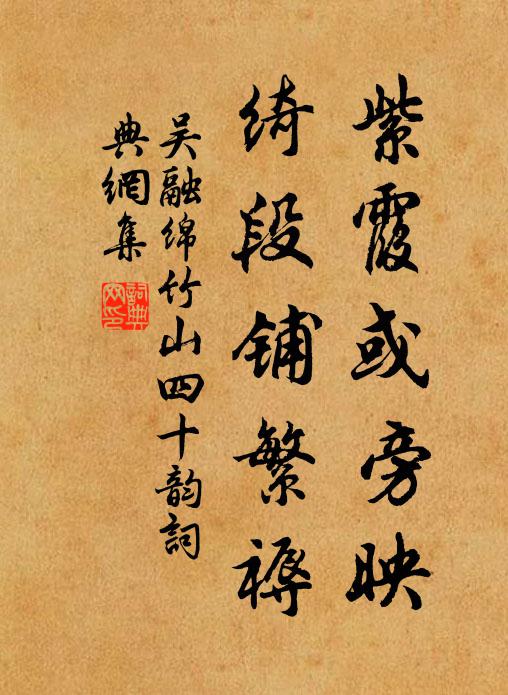 紫霞或旁映
绮段铺繁褥
吴融绵竹山四十韵詞
典網集
詞典網印